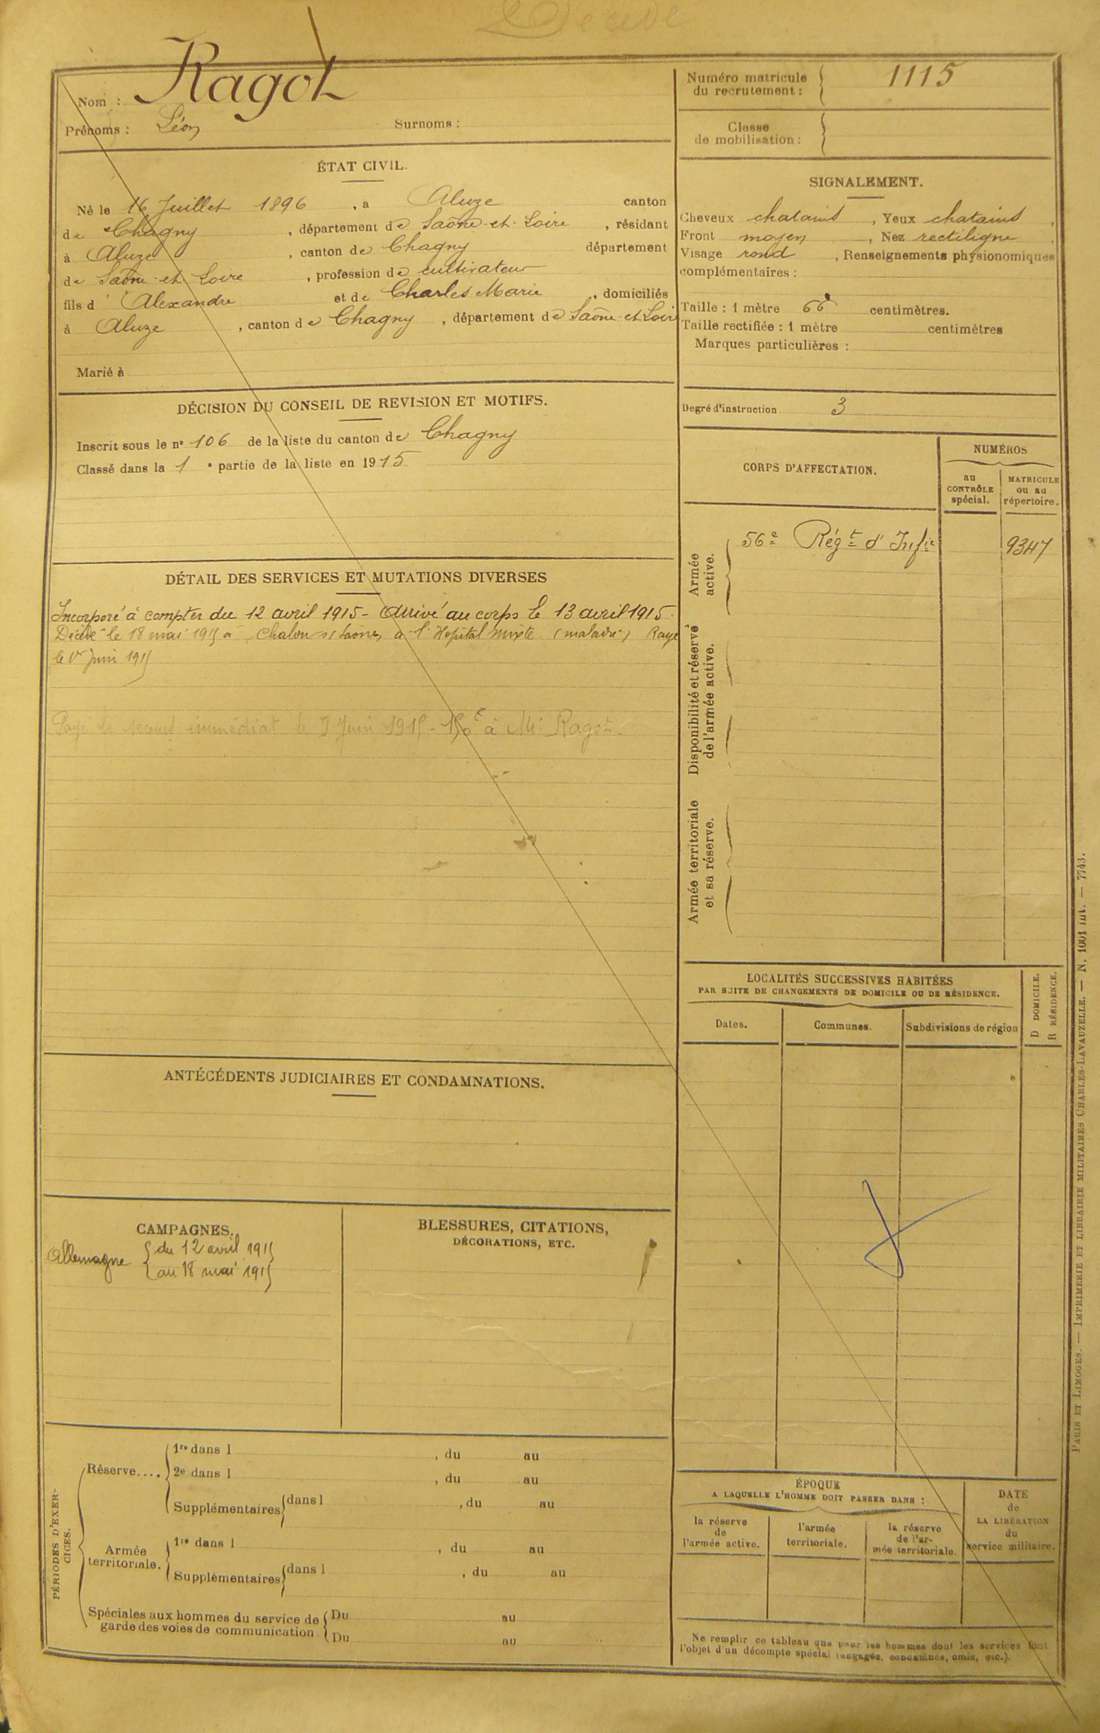 Décédé
Nom : Ragot
Prénoms : Léon Surnoms :
ÉTAT CIVIL.
Né le 16 Juillet 1896, à Aluze canton
de Chagny, département de Saône-et-Loire, résidant
à Aluze, canton de Chagny département
de Saône-et-Loire, profession de cultivateur
fils d'Alexandre et de Charles Marie, domiciliés
à Aluze, canton de Chagny, département de Saône-et-Loire
Marié à
DÉCISION DU CONSEIL DE REVISION ET MOTIFS.
Inscrit sous le n° 106 de la liste du canton de Chagny
Classé dans la 1e partie de la liste en 1915
DÉTAIL DES SERVICES ET MUTATIONS DIVERSES
Incorporé à compter du 12 avril 1915 - Arrivé au corps le 13 avril 1915.
Décédé le 18 mai 1915 à Chalon s/ Saône à l'Hopital mixte (maladie) Rayé
le 1er Juin 1915
Payé le secours immédiat le 9 Juin 1915 - 150f à Mr Ragot.
ANTÉCÉDENTS JUDICIAIRES ET CONDAMNATIONS.
CAMPAGNES.
Allemagne { du 12 avril 1915
{ au 18 mai 1915
BLESSURES, CITATIONS,
DÉCORATIONS, ETC.
PÉRIODES D'EXER-
CICES.
Réserve.... 1re dans l , du au
2e dans l , du au
Supplémentaires dans l , du au
Armée
territoriale. 1re dans l , du au
Supplémentaires dans l , du au
Spéciales aux hommes du service de
garde des voies de communication. Du au
Du au
Numéro matricule
du recrutement : 1115
Classe
de mobilisation :
SIGNALEMENT.
Cheveux chatains, Yeux chatains
Front moyen, Nez rectiligne,
Visage rond, Renseignements physionomiques
complémentaires :
Taille : 1 mètre 66 centimètres.
Taille rectifiée : 1 mètre centimètres
Marques particulières :
Degré d'instruction 3
CORPS D'AFFECTATION.
NUMÉROS
au
CONTRÔLE
spécial.
MATRICULE
ou au
répertoire.
Armée
active.
56e Régt d'Infie 9347
Disponibilité et réserve
de l'armée active.
Armée territoriale
et sa réserve.
LOCALITÉS SUCCESSIVES HABITÉES
PAR SUITE DE CHANGEMENTS DE DOMICILE OU DE RÉSIDENCE.
D DOMICILE.
R RÉSIDENCE.
Dates. Communes. Subdivisions de région
ÉPOQUE
A LAQUELLE L'HOMME DOIT PASSER DANS :
la réserve
de
l'armée active.
l'armée
territoriale.
la réserve
de l'ar-
mée territoriale.
DATE
de
LA LIBÉRATION
du
service militaire.
Ne remplir ce tableau que pour les hommes dont les services font
l'objet d'un décompte spécial (engagés, condamnés, omis, etc.).
PARIS ET LIMOGES. — IMPRIMERIE ET LIBRAIRIE MILITAIRES CHARLES-LAVAUZELLE. — N. 1001 int. — 7743.